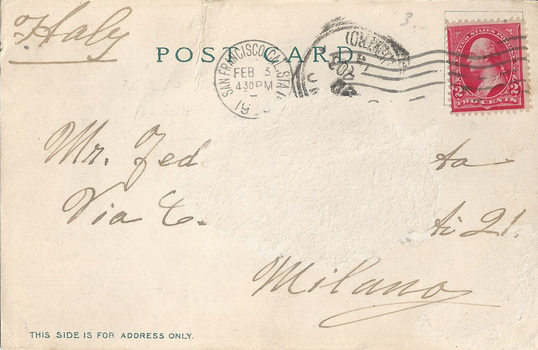 Italy
POST CARD.
SAN FRANCISCO, CAL. STA
FEB 3
430 PM
UNITED STATES
TWO CENTS
2 2
Mr. Fed ta
Via C. ti 21.
Milano
THIS SIDE IS FOR ADDRESS ONLY.